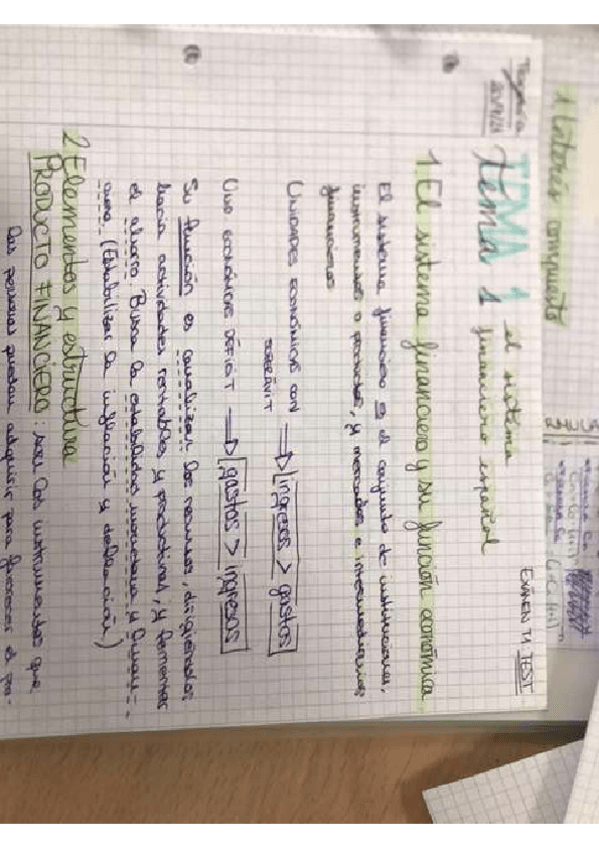 1 Interés compuesto
Tesorería
TEMA 1 el sistema
tema 1 financiero español
EXAMEN T1 TEST
1. El sistema financiero y su función económica
El sistema financiero es el conjunto de instituciones,
instrumentos o productos, y mercados e intermediarios
financieros
UNIDADES ECONÓMICAS CON SUPERÁVIT → ingresos > gastos
UND ECONÓMICAS DÉFICIT → gastos > ingresos
Su función es canalizar los recursos, dirigiéndolos
hacia actividades rentables y productivas, y fomentar
el ahorro. Busca la estabilidad monetaria y finan-
ciera (Estabilizar la inflación y deflación)
2 Elementos y estructura
PRODUCTO FINANCIERO: son los instrumentos que
las personas pueden adquirir para favorecer el pa-